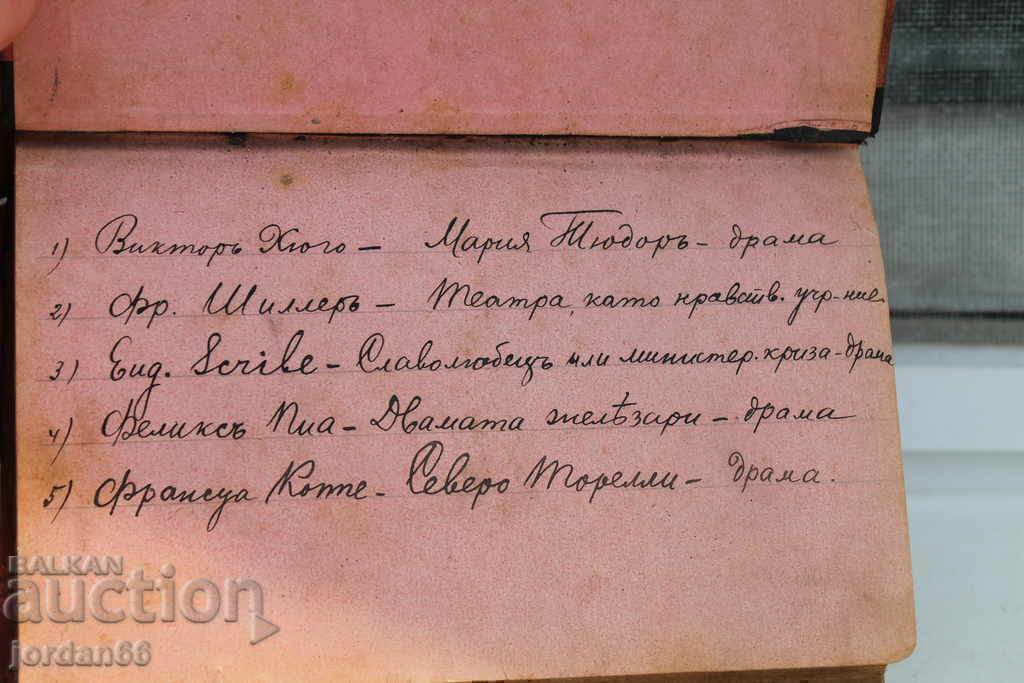 1) Викторъ Хюго – Мария Тюдоръ – драма
2) Фр. Шиллеръ – Театра, като нравств. учр-ние.
3) Eug. Scribe – Славолюбецъ или министер. криза – драма
4) Феликсъ Пиа – Двамата желѣзари – драма
5) Франсуа Копе – Северо Торелли – драма.
BALKAN
auction
jordan66